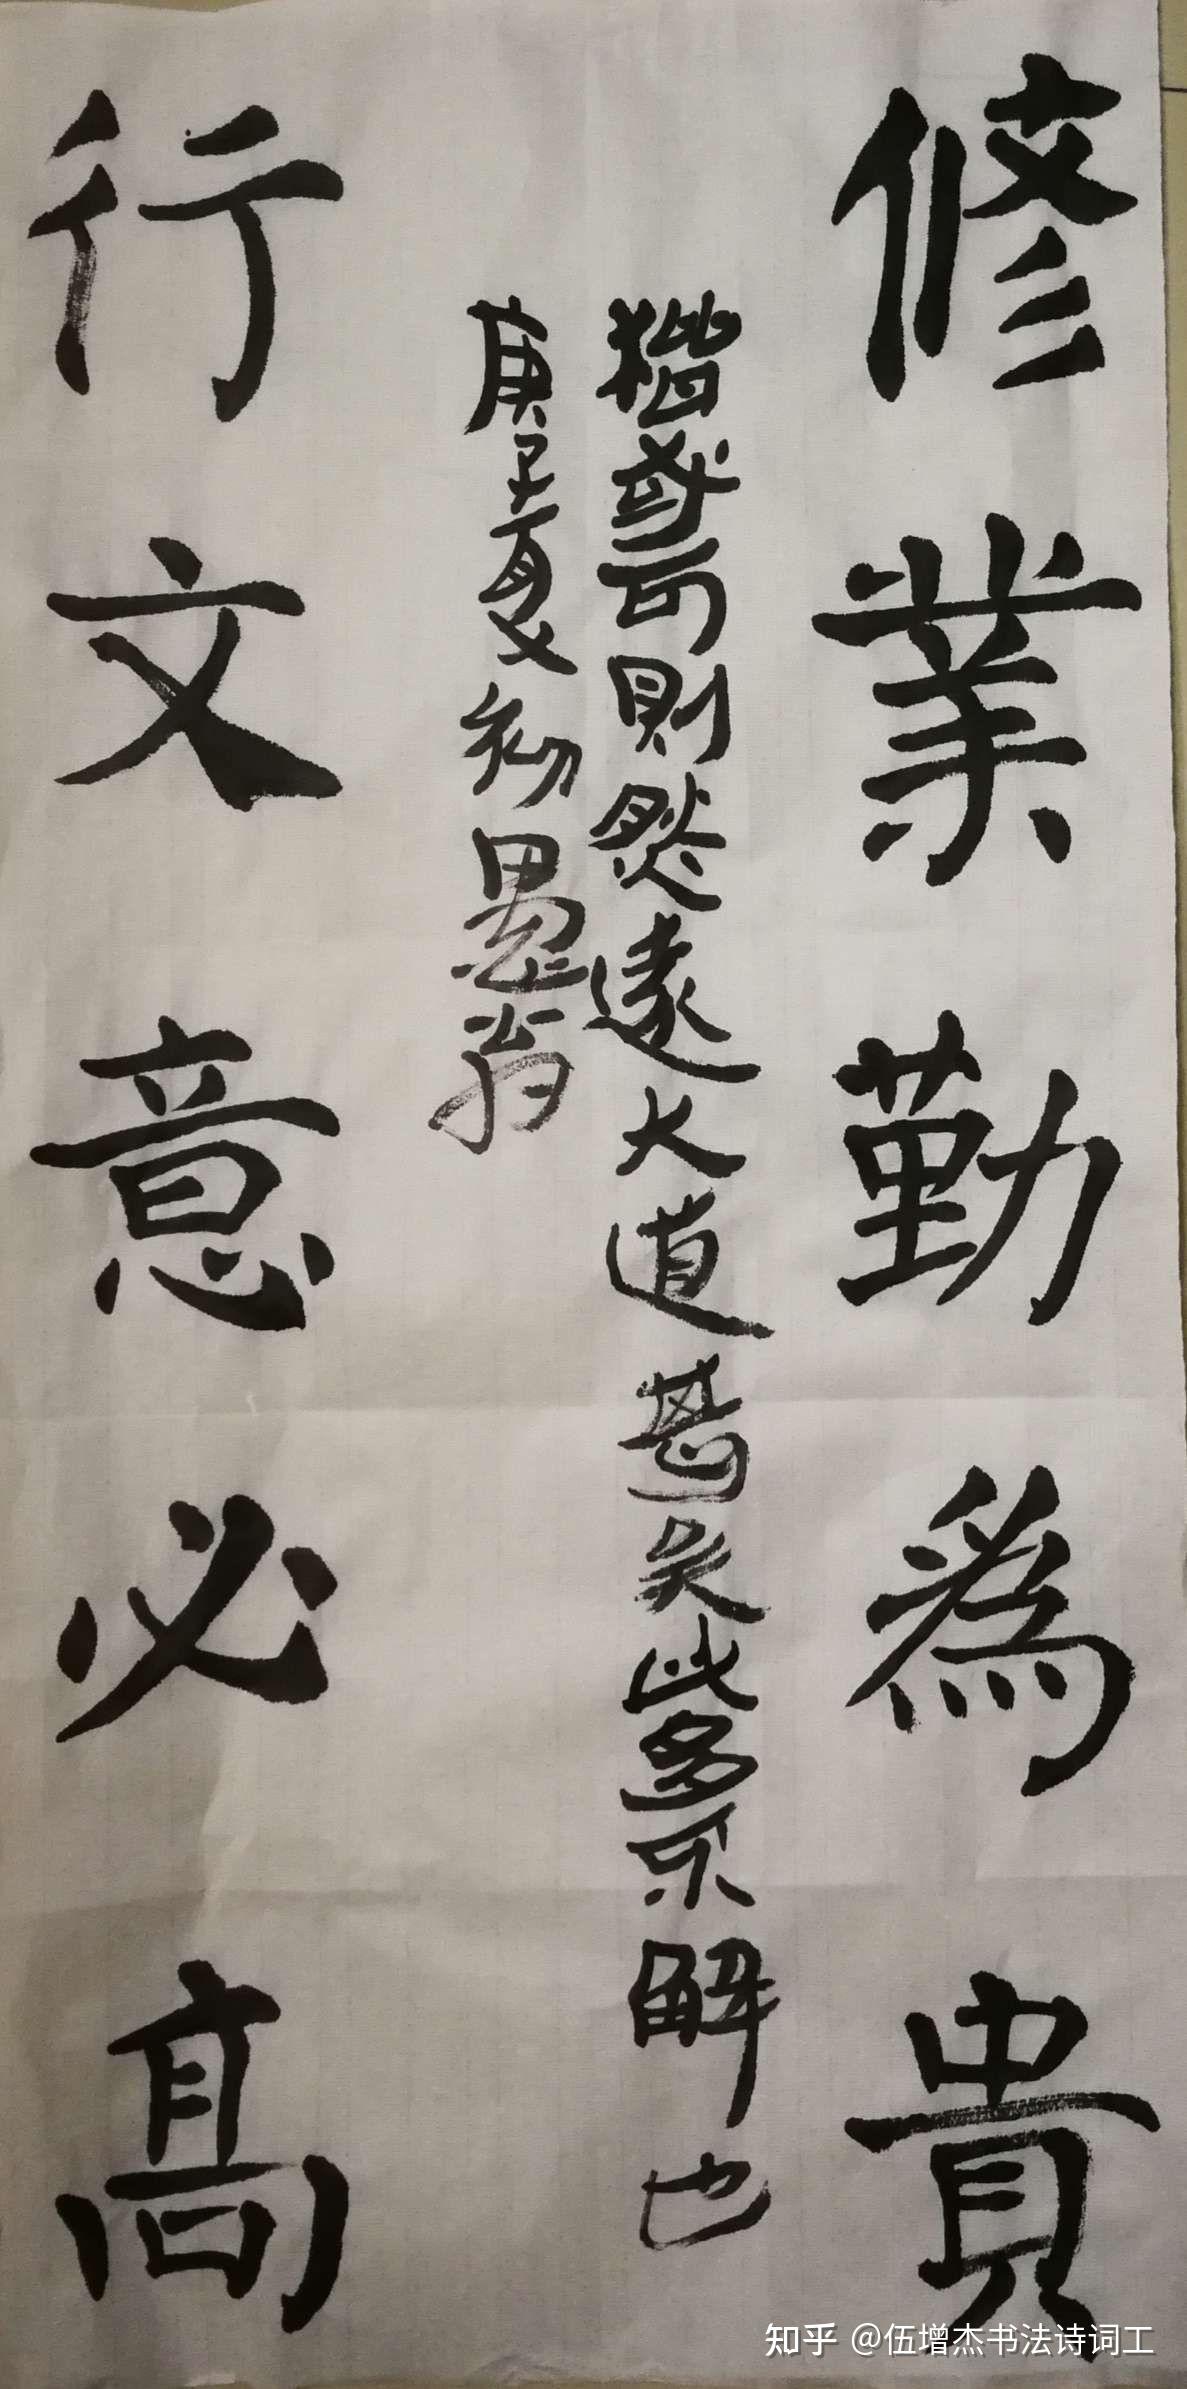 修業勤為貴
然遠大道甚矣此多不解也
庚子夏初愚翁
行文意必高
知乎 @伍增杰书法诗词工